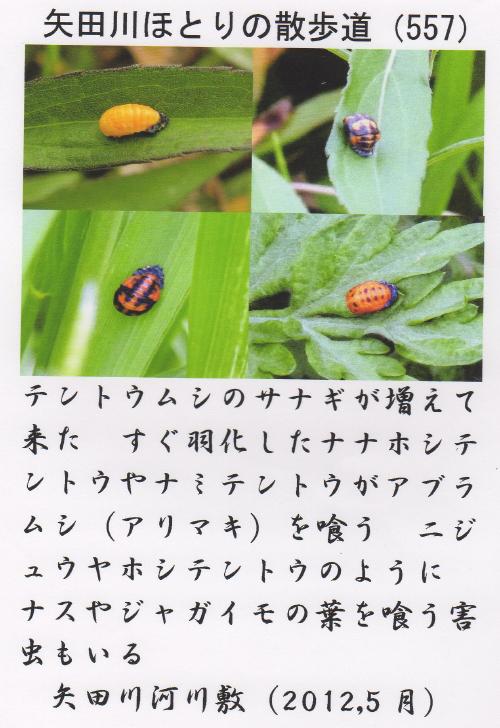 矢田川ほとりの散歩道（557）
テントウムシのサナギが増えて
来た　すぐ羽化したナナホシテ
ントウやナミテントウがアブラ
ムシ（アリマキ）を喰う　ニジ
ュウヤホシテントウのように
ナスやジャガイモの葉を喰う害
虫もいる
矢田川河川敷（2012,5月）